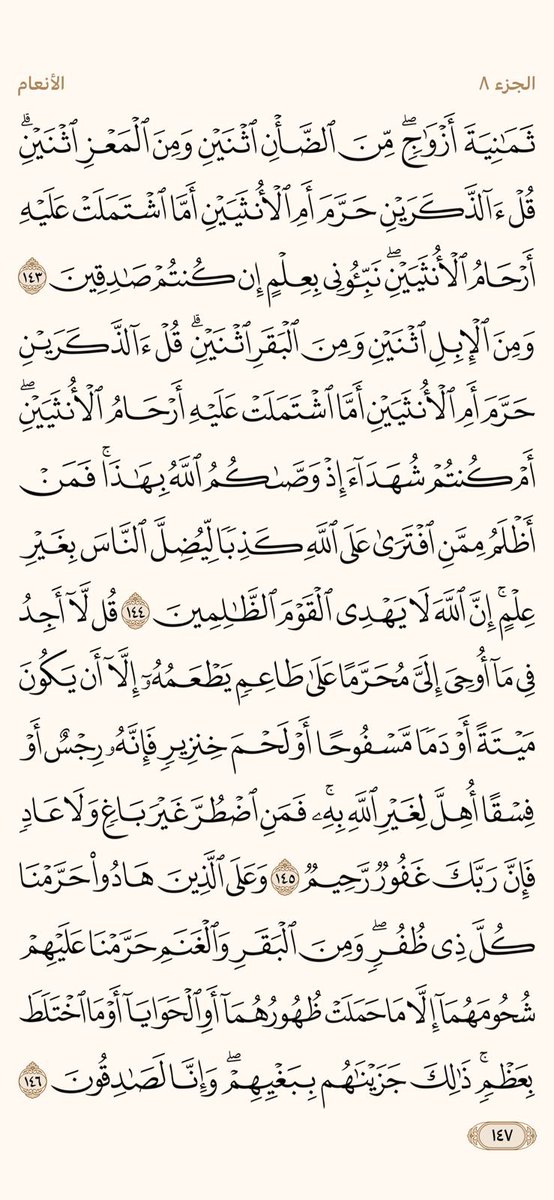 الجزء ٨
الأنعام
ثَمَٰنِيَةَ أَزۡوَٰجٖۖ مِّنَ ٱلضَّأۡنِ ٱثۡنَيۡنِ وَمِنَ ٱلۡمَعۡزِ ٱثۡنَيۡنِۗ
قُلۡ ءَآلذَّكَرَيۡنِ حَرَّمَ أَمِ ٱلۡأُنثَيَيۡنِ أَمَّا ٱشۡتَمَلَتۡ عَلَيۡهِ
أَرۡحَامُ ٱلۡأُنثَيَيۡنِۖ نَبِّـُٔونِي بِعِلۡمٍ إِن كُنتُمۡ صَٰدِقِينَ ١٤٣
وَمِنَ ٱلۡإِبِلِ ٱثۡنَيۡنِ وَمِنَ ٱلۡبَقَرِ ٱثۡنَيۡنِۗ قُلۡ ءَآلذَّكَرَيۡنِ
حَرَّمَ أَمِ ٱلۡأُنثَيَيۡنِ أَمَّا ٱشۡتَمَلَتۡ عَلَيۡهِ أَرۡحَامُ ٱلۡأُنثَيَيۡنِۖ
أَمۡ كُنتُمۡ شُهَدَآءَ إِذۡ وَصَّىٰكُمُ ٱللَّهُ بِهَٰذَاۚ فَمَنۡ
أَظۡلَمُ مِمَّنِ ٱفۡتَرَىٰ عَلَى ٱللَّهِ كَذِبٗا لِّيُضِلَّ ٱلنَّاسَ بِغَيۡرِ
عِلۡمٍۚ إِنَّ ٱللَّهَ لَا يَهۡدِي ٱلۡقَوۡمَ ٱلظَّٰلِمِينَ ١٤٤ قُل لَّآ أَجِدُ
فِي مَآ أُوحِيَ إِلَيَّ مُحَرَّمًا عَلَىٰ طَاعِمٖ يَطۡعَمُهُۥٓ إِلَّآ أَن يَكُونَ
مَيۡتَةً أَوۡ دَمٗا مَّسۡفُوحًا أَوۡ لَحۡمَ خِنزِيرٖ فَإِنَّهُۥ رِجۡسٌ أَوۡ
فِسۡقًا أُهِلَّ لِغَيۡرِ ٱللَّهِ بِهِۦۚ فَمَنِ ٱضۡطُرَّ غَيۡرَ بَاغٖ وَلَا عَادٖ
فَإِنَّ رَبَّكَ غَفُورٞ رَّحِيمٞ ١٤٥ وَعَلَى ٱلَّذِينَ هَادُواْ حَرَّمۡنَا
كُلَّ ذِي ظُفُرٖۖ وَمِنَ ٱلۡبَقَرِ وَٱلۡغَنَمِ حَرَّمۡنَا عَلَيۡهِمۡ
شُحُومَهُمَآ إِلَّا مَا حَمَلَتۡ ظُهُورُهُمَآ أَوِ ٱلۡحَوَايَآ أَوۡ مَا ٱخۡتَلَطَ
بِعَظۡمٖۚ ذَٰلِكَ جَزَيۡنَٰهُم بِبَغۡيِهِمۡۖ وَإِنَّا لَصَٰدِقُونَ ١٤٦
١٤٧